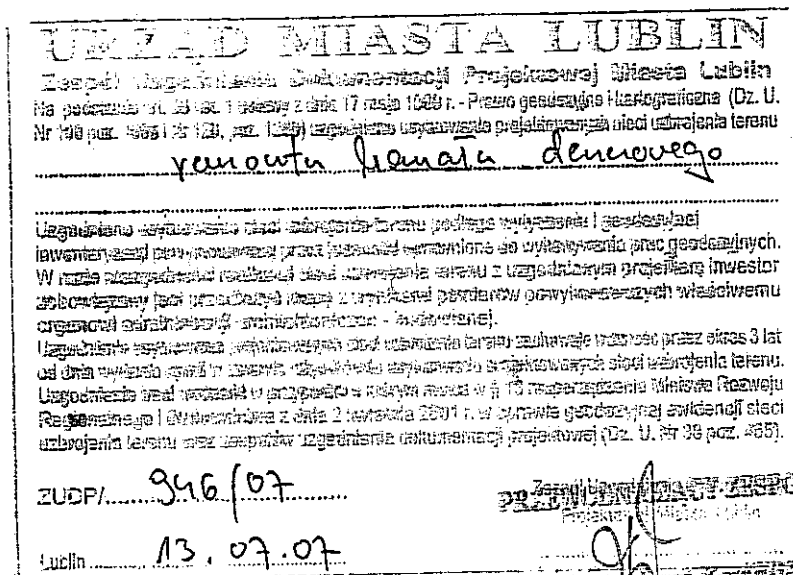 URZĄD MIASTA LUBLIN
Zespół Uzgadniania Dokumentacji Projektowej Miasta Lublin
Na podstawie art. 28 ust. 1 ustawy z dnia 17 maja 1989 r. - Prawo geodezyjne i kartograficzne (Dz. U.
Nr 100 poz. uzgodniono usytuowanie projektowanych sieci uzbrojenia terenu
remontu kanału
Uzgodnione usytuowanie sieci uzbrojenia terenu podlega wytyczeniu i geodezyjnej
inwentaryzacji powykonawczej przez jednostki uprawnione do wykonywania prac geodezyjnych.
W razie niezgodności realizacji sieci uzbrojenia terenu z uzgodnionym projektem inwestor
zobowiązany jest przedłożyć mapę z wynikami pomiarów powykonawczych właściwemu
organowi administracji architektoniczno - budowlanej.
Uzgodnienie usytuowania projektowanych sieci uzbrojenia terenu zachowuje ważność przez okres 3 lat
od dnia wydania opinii w sprawie usytuowania projektowanych sieci uzbrojenia terenu.
Uzgodnienie traci ważność w przypadku o którym mowa w § 13 rozporządzenia Ministra Rozwoju
Regionalnego i Budownictwa z dnia 2 kwietnia 2001 r. w sprawie geodezyjnej ewidencji sieci
uzbrojenia terenu oraz zespołów uzgadniania dokumentacji projektowej (Dz. U. Nr 38 poz. 455).
ZUDP/ 946/07
PRZEWODNICZĄCY ZESPO
Lublin 13.07.07